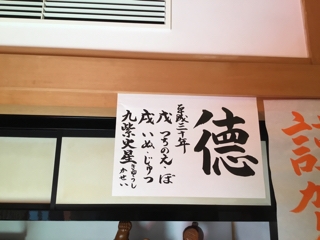 徳
平成三十年
戊 つちのえ・ぼ
戌 いぬ・じゅつ
九紫火星
きゅうし
かせい